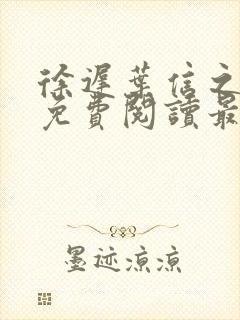 徐遲葉信之
免費閱讀最
墨迹凉凉